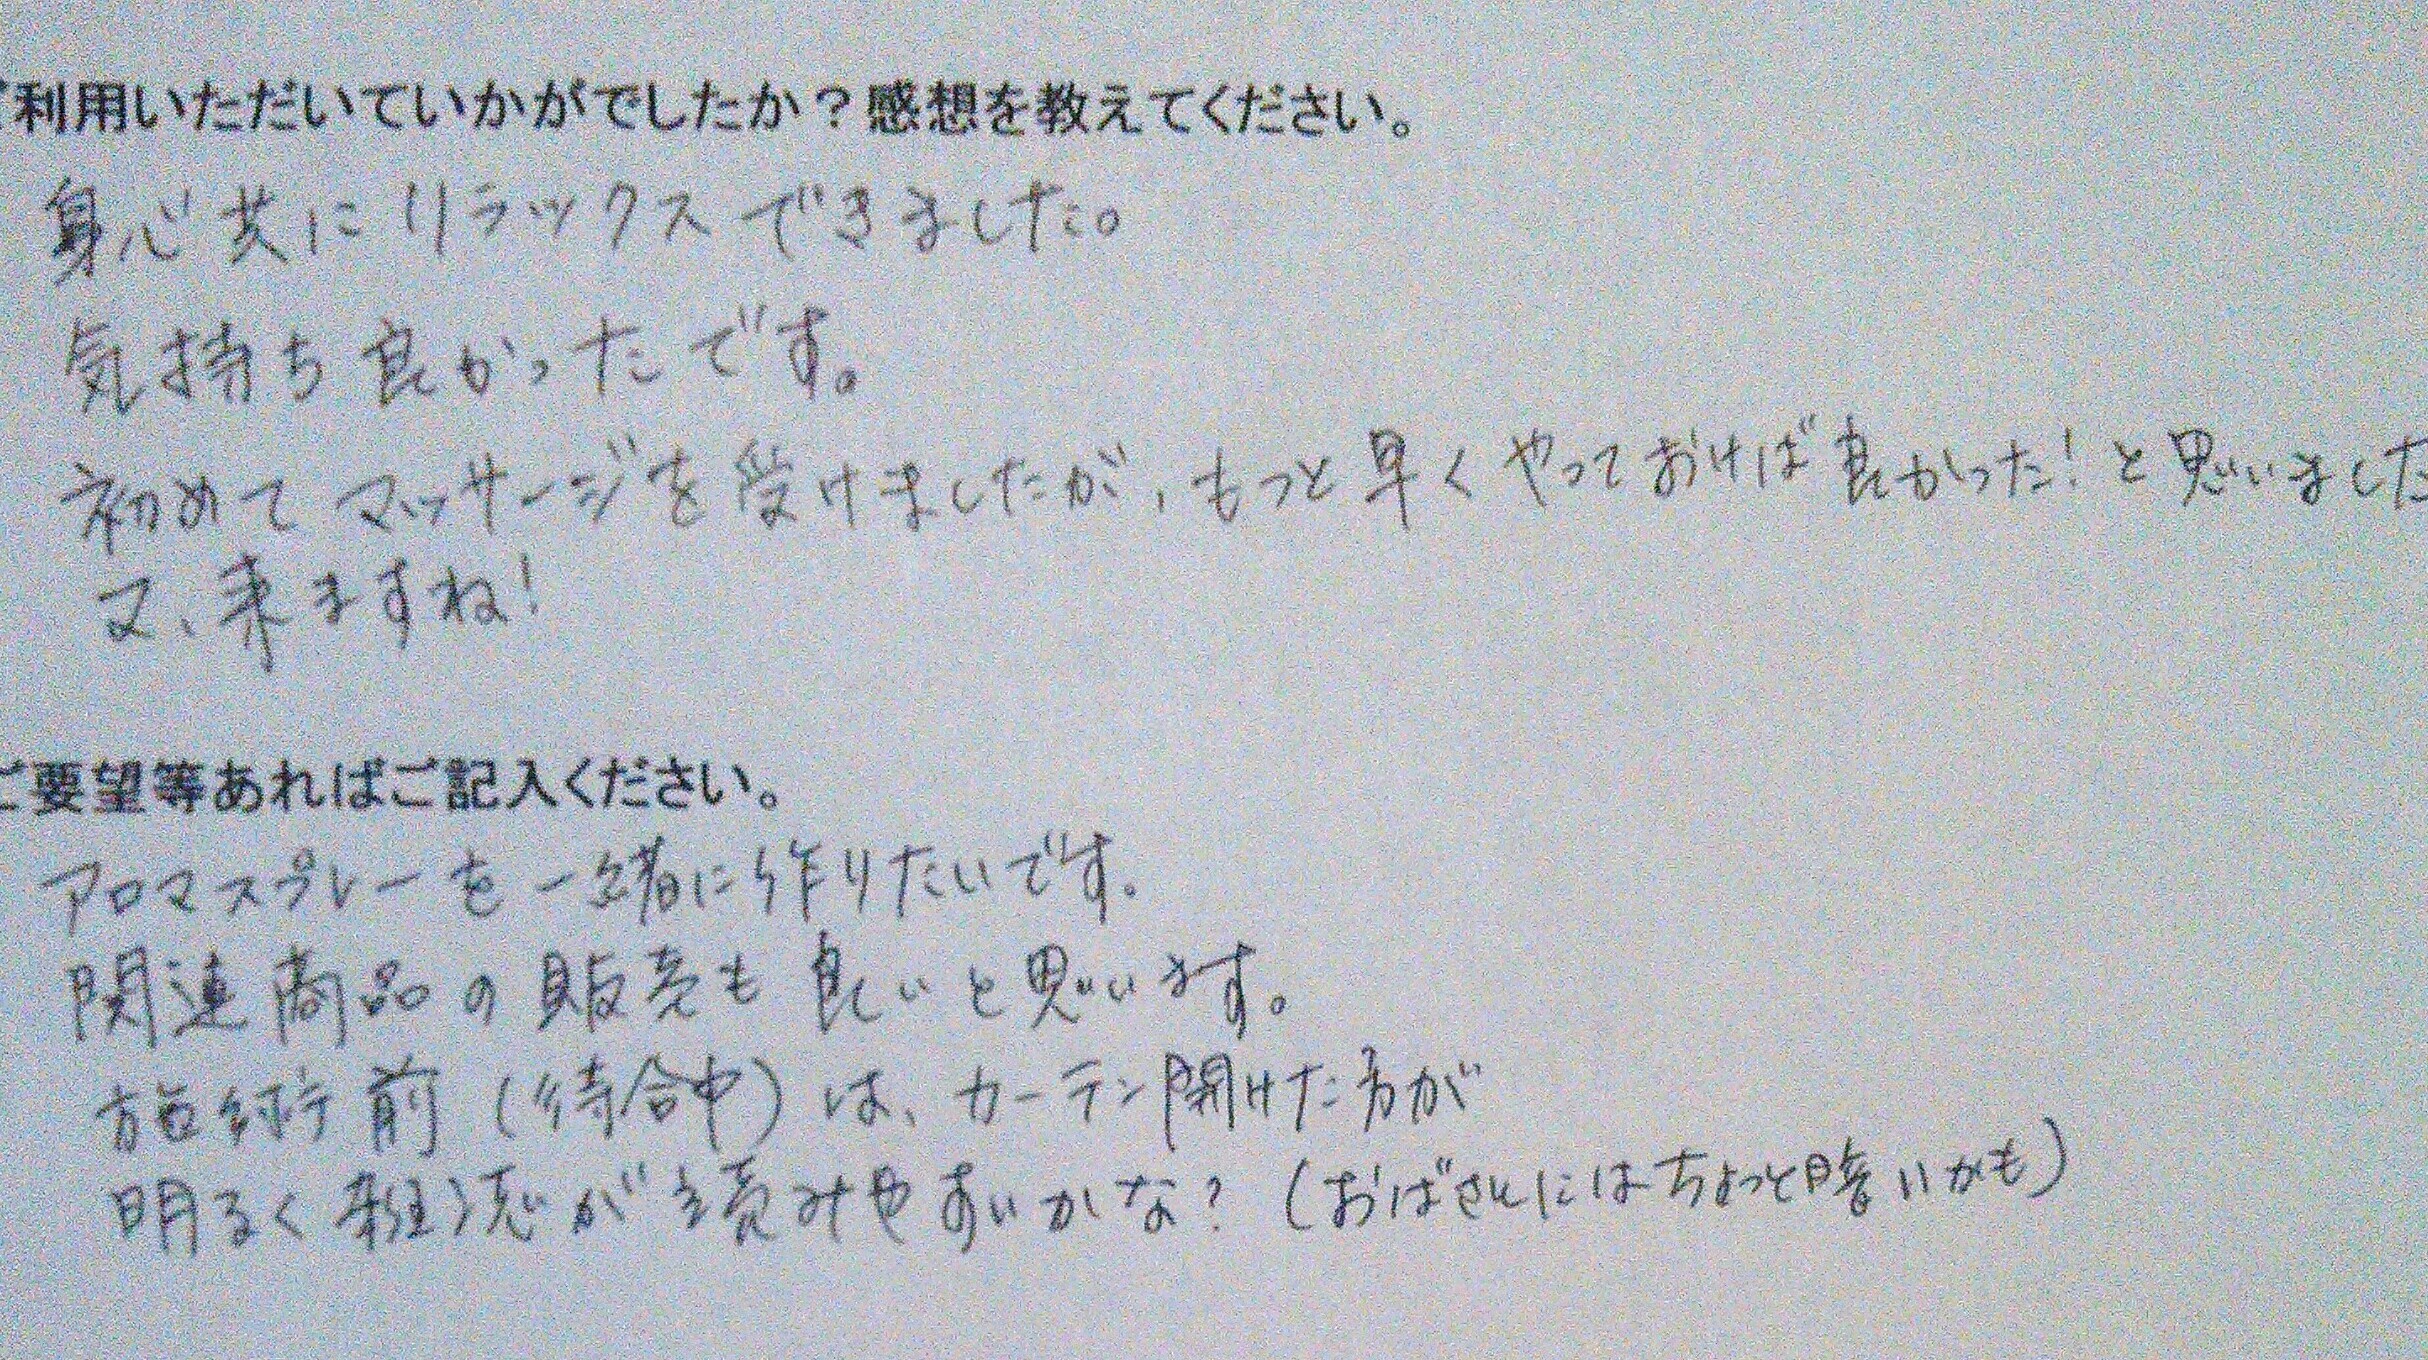 ご利用いただいていかがでしたか？感想を教えてください。
身心共にリラックスできました。
気持ち良かったです。
初めてマッサージを受けましたが、もっと早くやっておけば良かった！と思いました
又、来ますね！
ご要望等あればご記入ください。
アロマスプレーを一緒に作りたいです。
関連商品の販売も良いと思います。
施術前（待合中）は、カーテン開けた方が
明るく雑誌が読みやすいかな？（おばさんにはちょっと暗いかも）